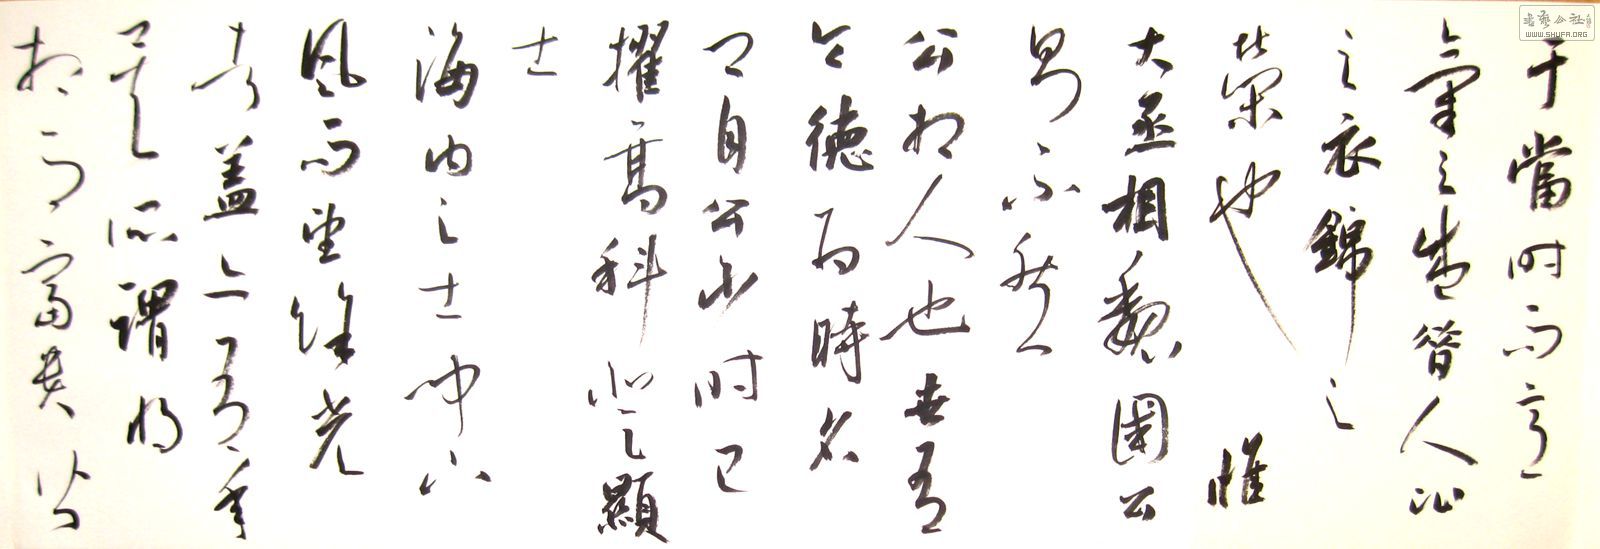 于當时而意
氣之盛昔人比
之衣錦之
榮也 惟
大丞相魏國公
則不然
公相人也世有
令德為時名
卿自公少时已
擢高科登顯
士
海内之士聞下
風而望餘光
者蓋亦有年
矣所謂将
相而富貴皆
書藝公社
WWW.SHUFA.ORG